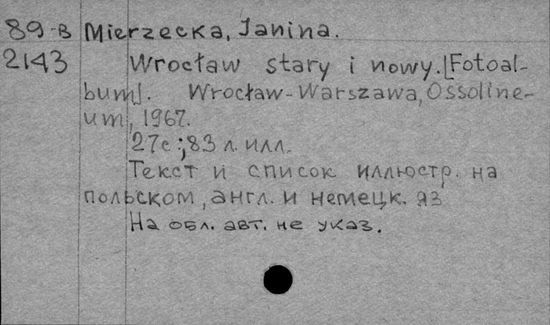 89-В Mierzecka, Janina.
2143 Wrocław stary i nowy. [Fotoal-
bum]. Wrocław-Warszawa, Ossoline-
um, 1967.
27с.; 83 л. илл.
Текст и список иллюстр. на
польском, англ. и немецк. яз
На обл. авт. не указ.